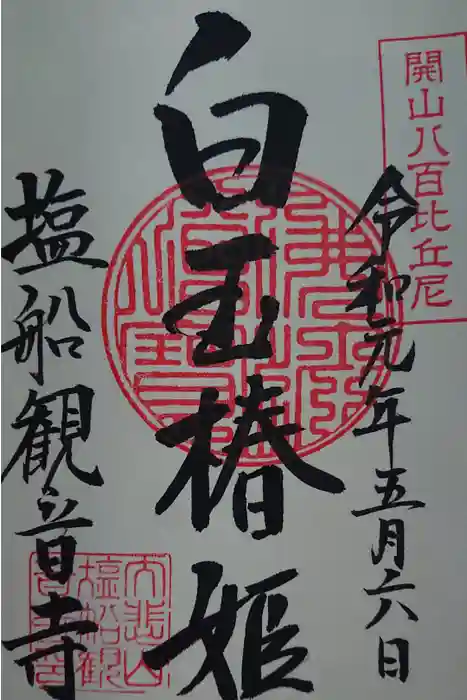 開山八百比丘尼
令和元年五月六日
白玉椿姫
塩船観音寺
大悲山
塩船観
音寺